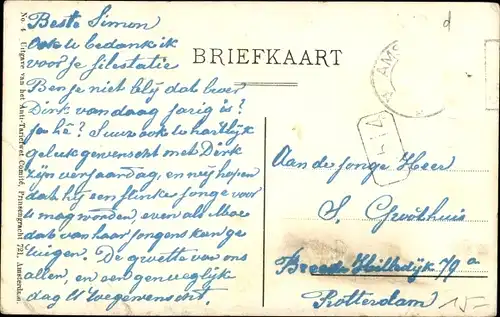 Beste Simon
Ook u bedank ik
voor je filestatie
Ben je niet blij dat broer
Dirk vandaag jarig is?
Ja hé? Suus ook u hartlijk
geluk gewenscht met Dirk
zijn verjaardag, en wij hopen
dat hij een flinke jonge voor
u mag worden, even als Moe
dat van haar jongens kan ge
tuigen. De groette van ons
allen, en een genoeglijk
dag U toegewenscht.
No. 4 Uitgave van het Anti-Tariefwet Comité, Prinsengracht 721, Amsterdam.
BRIEFKAART
AMS
Aan de jonge Heer
S. Groothuis
Breede Hilledijk 79 a
Rotterdam
15-
d